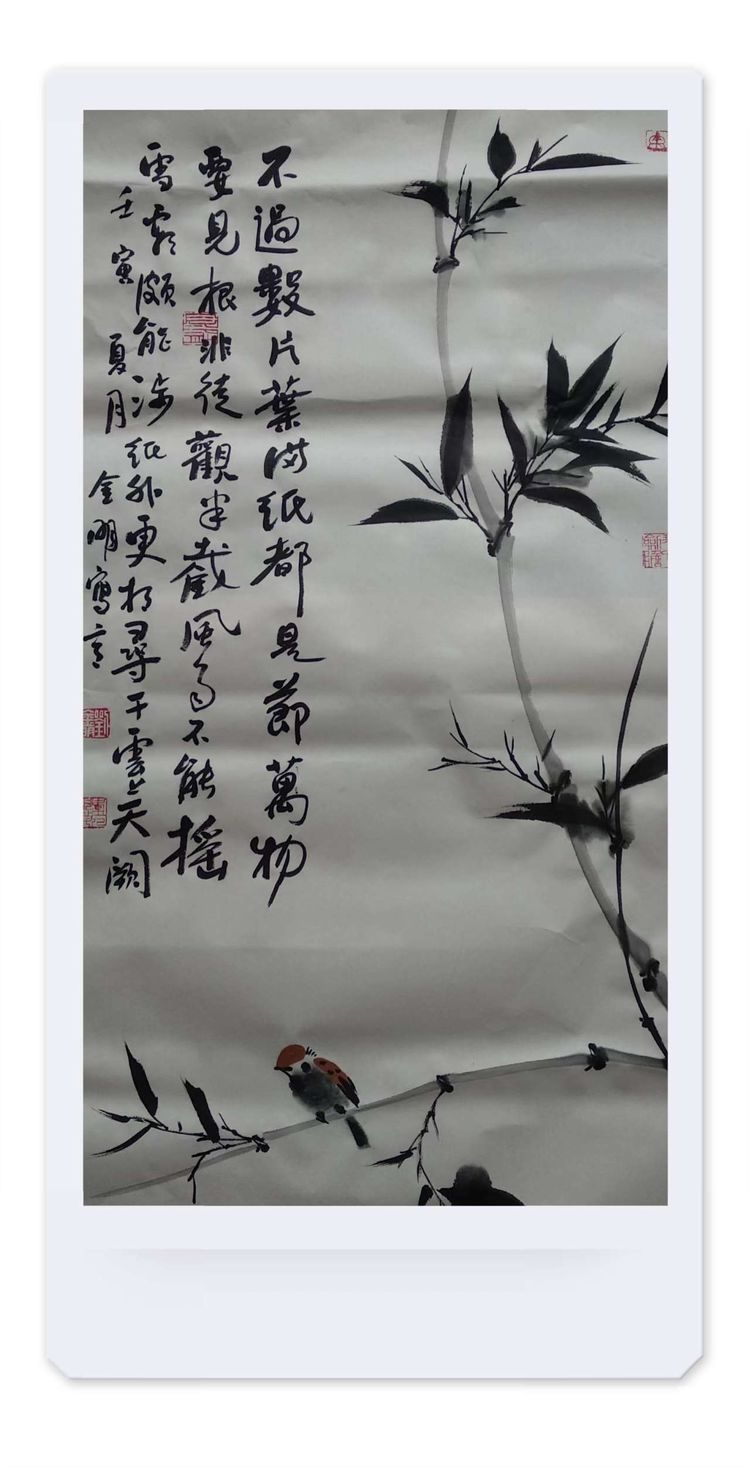 不過數片葉滿紙都是節萬物
要見根非徒觀半截風雨不能搖
雪霜頗能涉紙外更相尋干雲上天闕
壬寅夏月金明寫